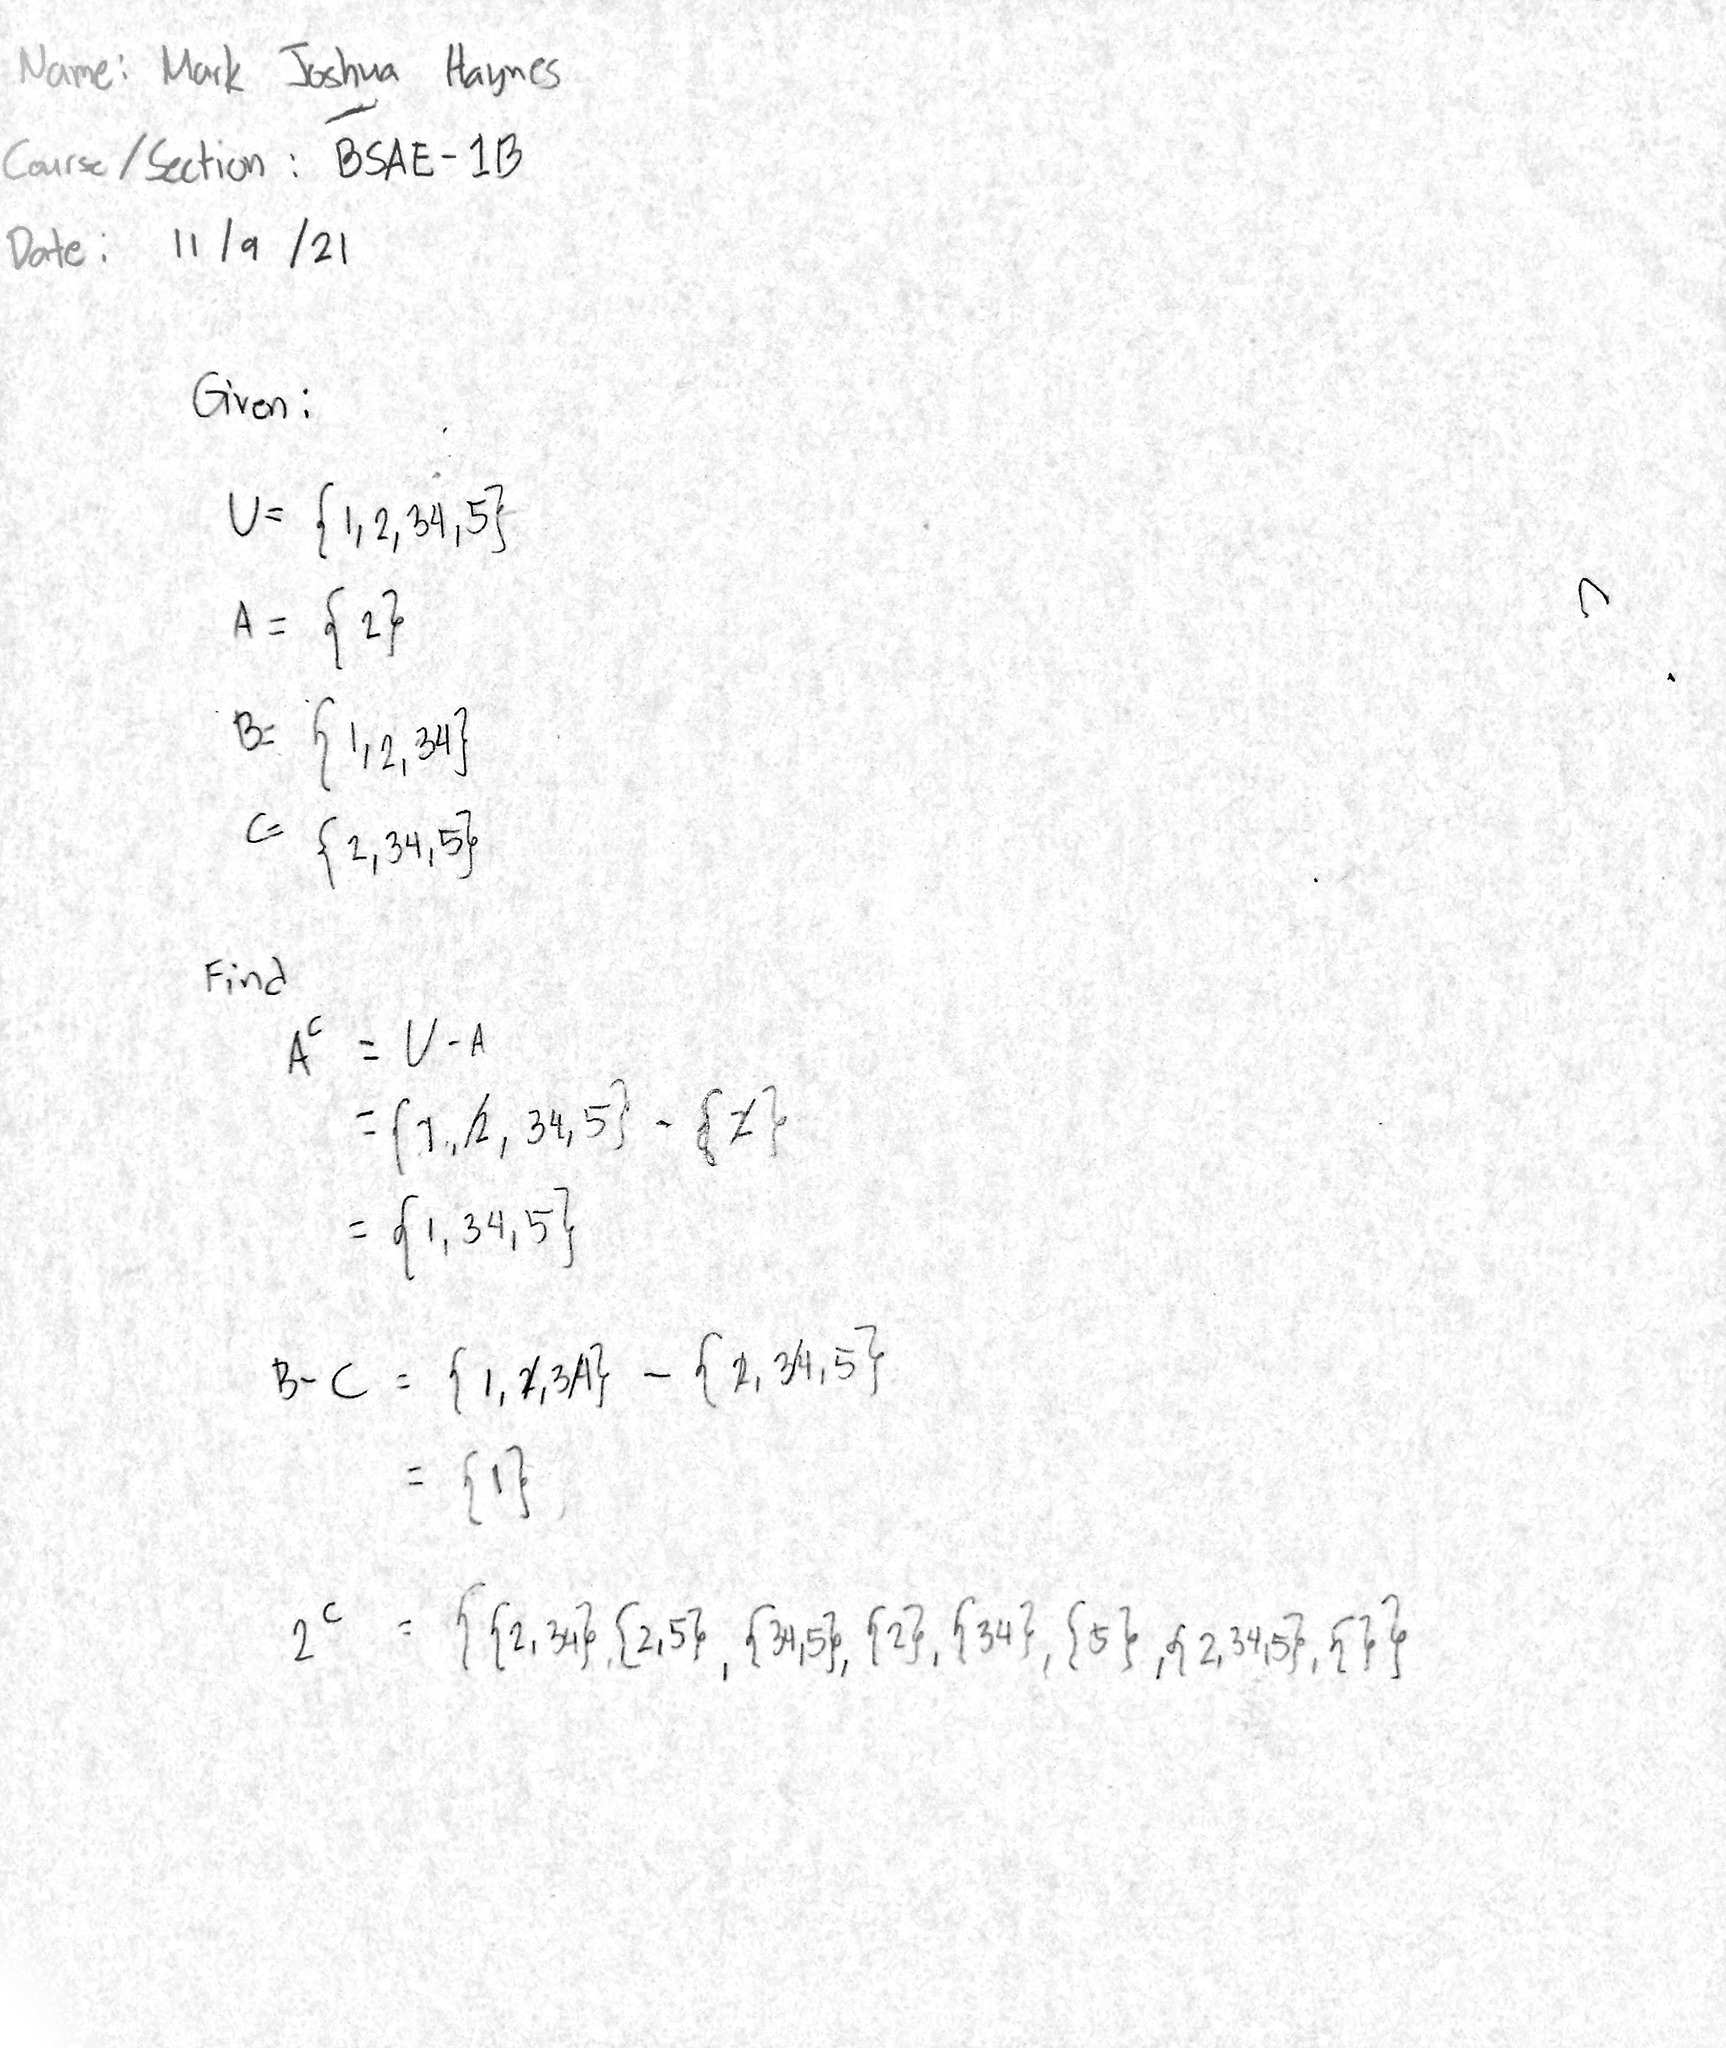 Name: Mark Joshua Haynes
Course/Section: BSAE-1B
Date: 11/9/21
Given:
U= {1,2,34,5}
A= {2}
B= {1,2,34}
C= {2,34,5}
Find
A^c = U-A
= {1,2,34,5} - {2}
= {1,34,5}
B-C = {1,2,34} - {2,34,5}
= {1}
2^c = {{2,34},{2,5},{34,5},{2},{34},{5},{2,34,5},{}}